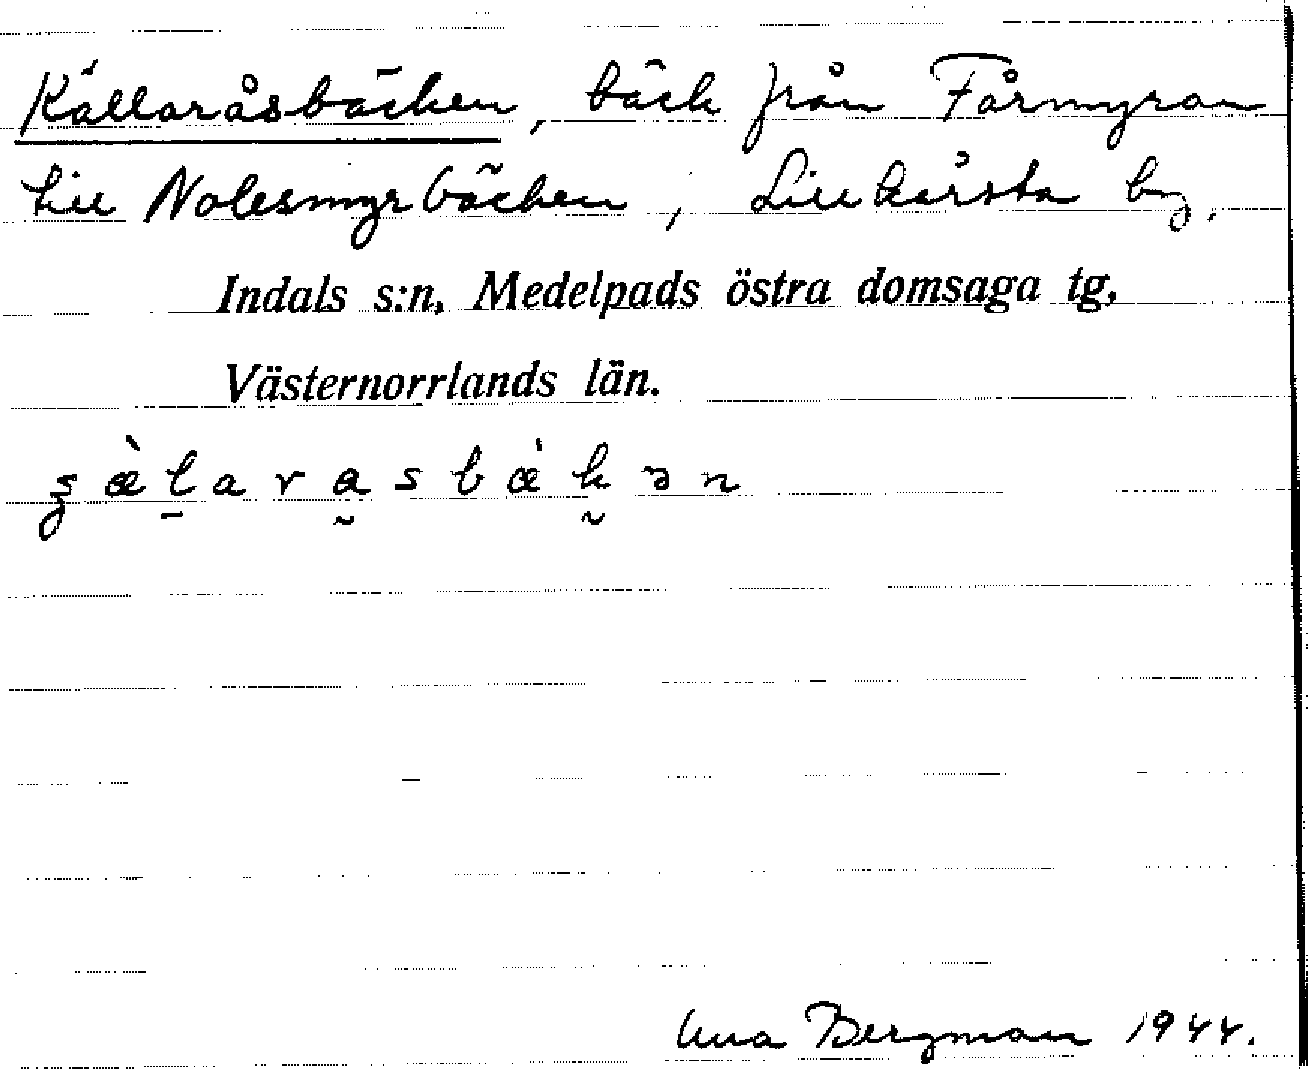 Källaråsbäcken, bäck från Fårmyran
till Nolesmyrbäcken, Lill Kårsta by,
Indals s:n, Medelpads östra domsaga tg,
Västernorrlands län.
ʂæ̀l̠ara̰sbæ̀k̰ən
Anna Bergman 1944.